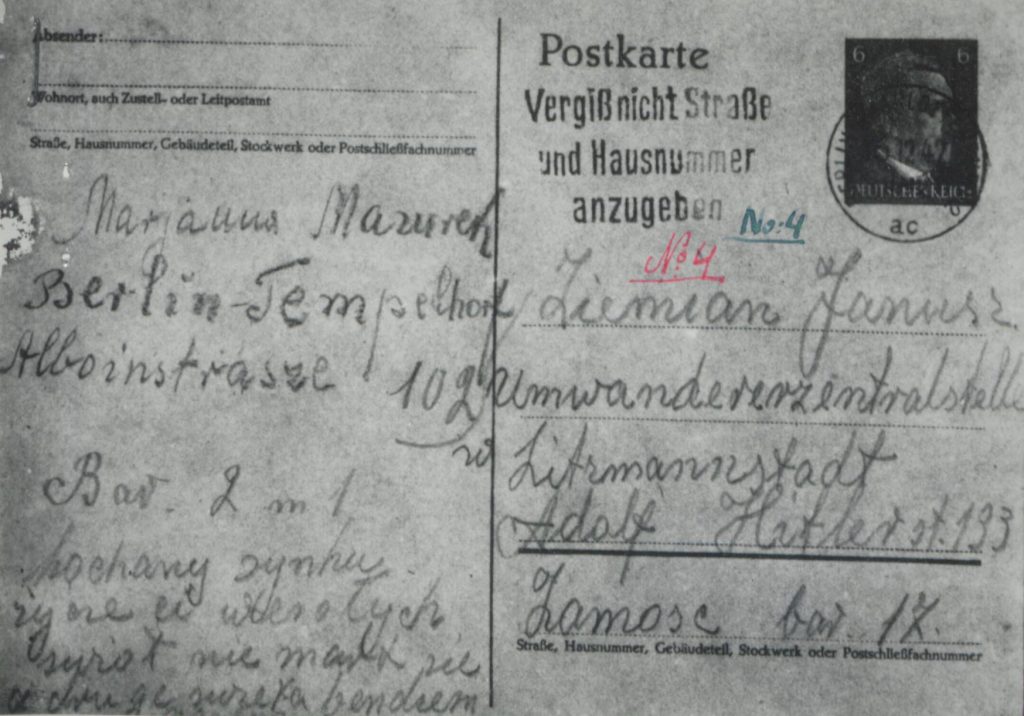 Absender:
Wohnort, auch Zustell- oder Leitpostamt
Straße, Hausnummer, Gebäudeteil, Stockwerk oder Postschließfachnummer
Marjanna Mazurek
Berlin-Tempelhorf
Alboinstrasze 102
Bar. 2 m 1
kochany synku
życze ci wesołych
świąt nie martw sie
a druge święta bendziem
Postkarte
Vergiß nicht Straße
und Hausnummer
anzugeben
6 6
DEUTSCHES REICH
ac
No: 4
No 4
Ziemian Janusz
Umwandererzentralstelle
Litzmannstadt
Adolf Hitler st. 133
Zamosc bar. 17.
Straße, Hausnummer, Gebäudeteil, Stockwerk oder Postschließfachnummer